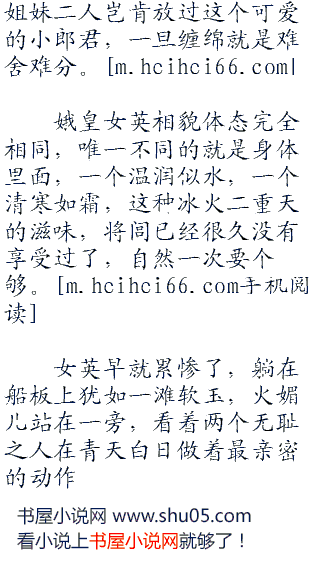 姐妹二人岂肯放过这个可爱
的小郎君，一旦缠绵就是难
舍难分。[m.hcihci66.com|
娥皇女英相貌体态完全
相同，唯一不同的就是身体
里面，一个温润似水，一个
清寒如霜，这种冰火二重天
的滋味，将闾已经很久没有
享受过了，自然一次要个
够。[m.hcihci66.com手机阅
读]
女英早就累惨了，躺在
船板上犹如一滩软玉，火媚
儿站在一旁，看着两个无耻
之人在青天白日做着最亲密
的动作
书屋小说网 www.shu05.com
看小说上书屋小说网就够了！